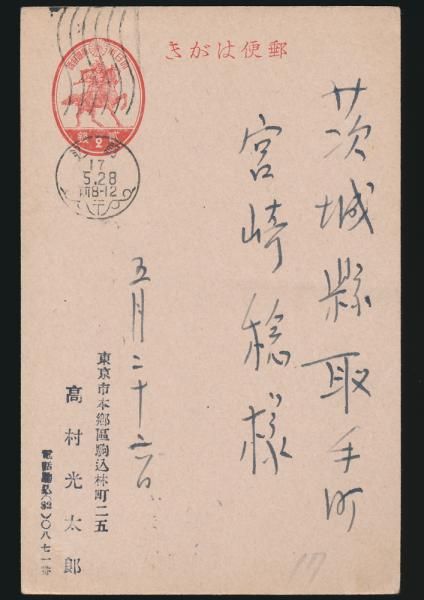 郵便はがき
茨城縣取手町
宮崎稔様
五月二十六日
東京市本郷區駒込林町二五
高村光太郎
電話駒込(82)〇八七一番
貳銭
2
17
5.28
前8-12
17